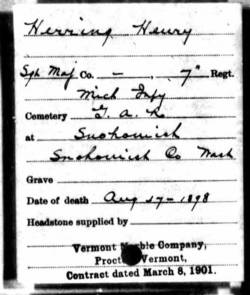 Herring Henry
Sgt Maj Co. — , 7" Regt.
Mich Infy
Cemetery G. A. R.
at Snohomish
Snohomish Co Wash
Grave
Date of death Aug 27-1898
Headstone supplied by
Vermont Marble Company,
Proctor, Vermont,
Contract dated March 8, 1901.